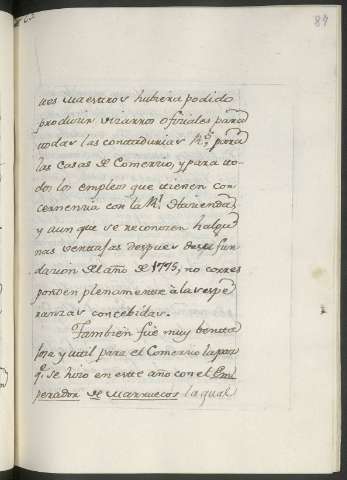 87
ues Maestros hubiera podido
producir vizarros oficiales para
todas las contadurias R.s para
las casas de Comercio, y para to-
dos los empleos que tienen con
cernencia con la R.l Hacienda,
y aun que se reconocen halgu
nas ventajas despues de su fun
dacion del año de 1775, no corres
ponden plenamente à las espe
ranzas concebidas.
Tambien fué muy benta
josa y util para el Comercio la paz
q.e se hizo en este año con el Em
perador de Marruecos la qual